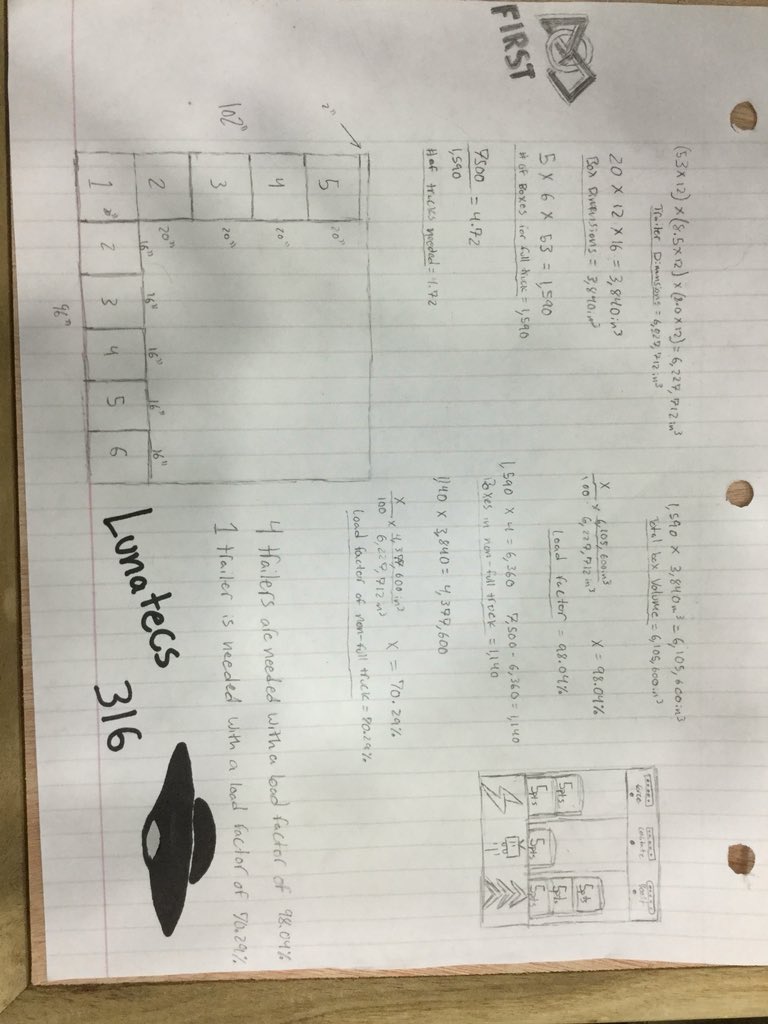 (53X12) X (8.5X12) X (8.0X12) = 6,227,712 in³
Trailer Dimensions = 6,227,712 in³
20 X 12 X 16 = 3,840 in³
Box Dimensions = 3,840 in³
5 X 6 X 53 = 1,590
# of Boxes for full truck = 1,590
7500
1,590
= 4.72
# of trucks needed = 4.72
FIRST
2"
102"
5
20"
4
20"
3
20"
2
20"
16"
16"
16"
16"
16"
1
2
3
4
5
6
96"
1,590 X 3,840 in³ = 6,105,600 in³
Total box Volume = 6,105,600 in³
X
100
X
6,105,600 in³
6,227,712 in³
X = 98.04%
Load factor = 98.04%
1,590 X 4 = 6,360 7,500 - 6,360 = 1,140
Boxes in non-full truck = 1,140
1,140 X 3,840 = 4,377,600
X
100
X
4,377,600 in³
6,227,712 in³
X = 70.29%
Load factor of non-full truck = 70.29%
4 trailers are needed with a load factor of 98.04%
1 trailer is needed with a load factor of 70.29%
Lunatecs
316
5pts
5pts
5pts
5pts
5pts
5pts